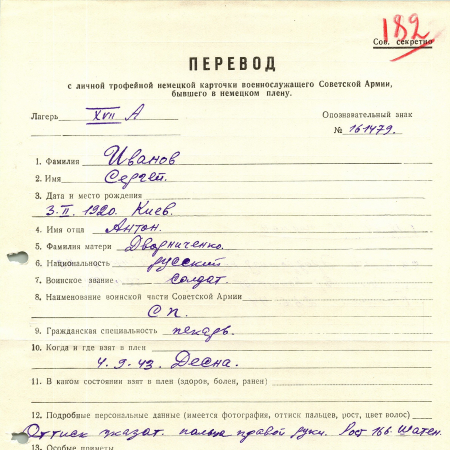 182
Сов. секретно
ПЕРЕВОД
с личной трофейной немецкой карточки военнослужащего Советской Армии,
бывшего в немецком плену.
Лагерь XVII A Опознавательный знак
№ 161479.
1. Фамилия Иванов
2. Имя Сергей.
3. Дата и место рождения
3. II. 1920. Киев.
4. Имя отца Антон.
5. Фамилия матери Дворниченко.
6. Национальность русский
7. Воинское звание солдат.
8. Наименование воинской части Советской Армии
СП.
9. Гражданская специальность пекарь.
10. Когда и где взят в плен
4. 9. 43. Десна.
11. В каком состоянии взят в плен (здоров, болен, ранен)
12. Подробные персональные данные (имеется фотография, оттиск пальцев, рост, цвет волос)
Оттиск указат. пальца правой руки. Рост 166 Шатен.
13. Особые приметы